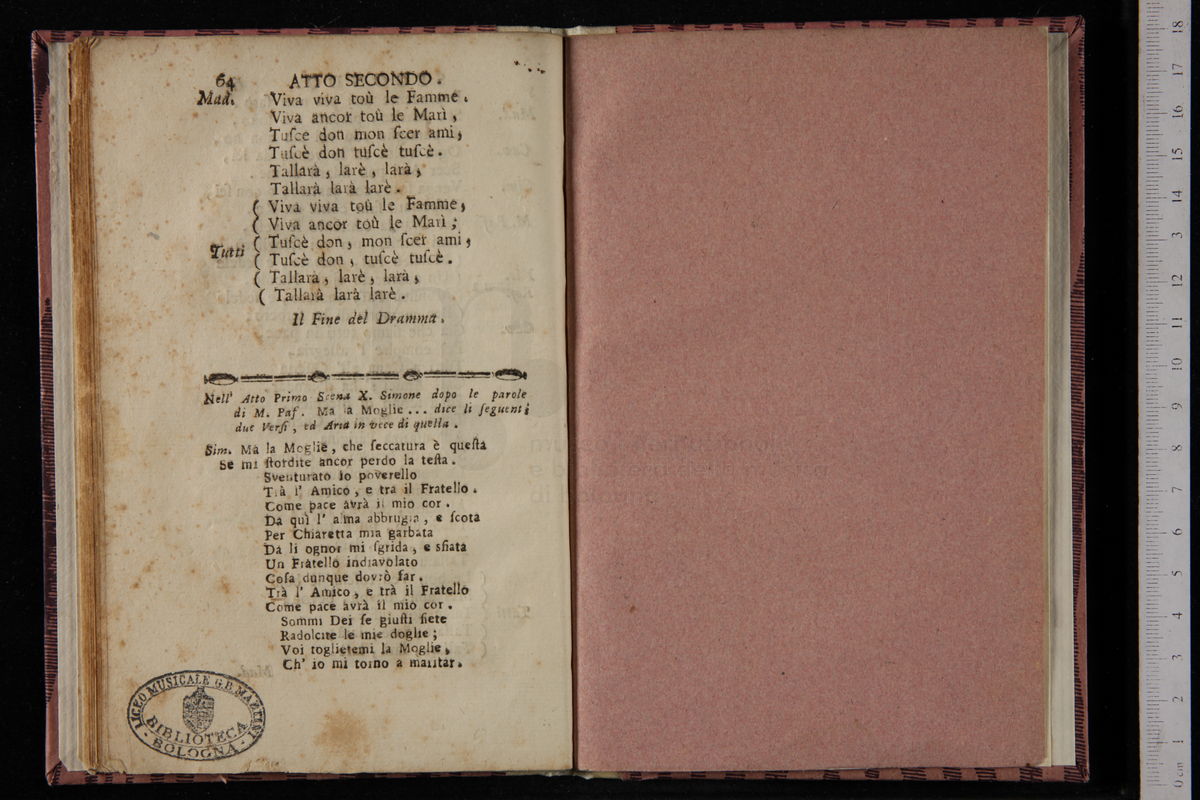 64 ATTO SECONDO.
Mad. Viva viva toù le Famme.
Viva ancor toù le Marì,
Tuſce don mon ſcer ami,
Tuſcè don tuſcè tuſcè.
Tallarà, larè, larà,
Tallarà larà larè.
( Viva viva toù le Famme,
( Viva ancor toù le Marì;
Tutti ( Tuſcè don, mon ſcer ami,
( Tuſcè don, tuſcè tuſcè.
( Tallarà, larè, larà,
( Tallarà larà larè.
Il Fine del Dramma.
Nell' Atto Primo Scena X. Simone dopo le parole
di M. Paſ. Ma la Moglie... dice li ſeguenti
due Verſi, ed Aria in vece di quella.
Sim. Ma la Moglie, che ſeccatura è queſta
Se mi ſtordite ancor perdo la teſta.
Sventurato io poverello
Trà l' Amico, e tra il Fratello.
Come pace avrà il mio cor.
Da quì l' alma abbrugia, e ſcota
Per Chiaretta mia garbata
Da lì ognor mi ſgrida, e sfiata
Un Fratello indiavolato
Coſa dunque dovrò far.
Trà l' Amico, e trà il Fratello
Come pace avrà il mio cor.
Sommi Dei ſe giuſti ſiete
Radolcite le mie doglie;
Voi toglietemi la Moglie,
Ch' io mi torno a maritar.
LICEO MUSICALE G.B. MARTINI
BIBLIOTECA
·BOLOGNA·
0 cm 1 2 3 4 5 6 7 8 9 10 11 12 13 14 15 16 17 18